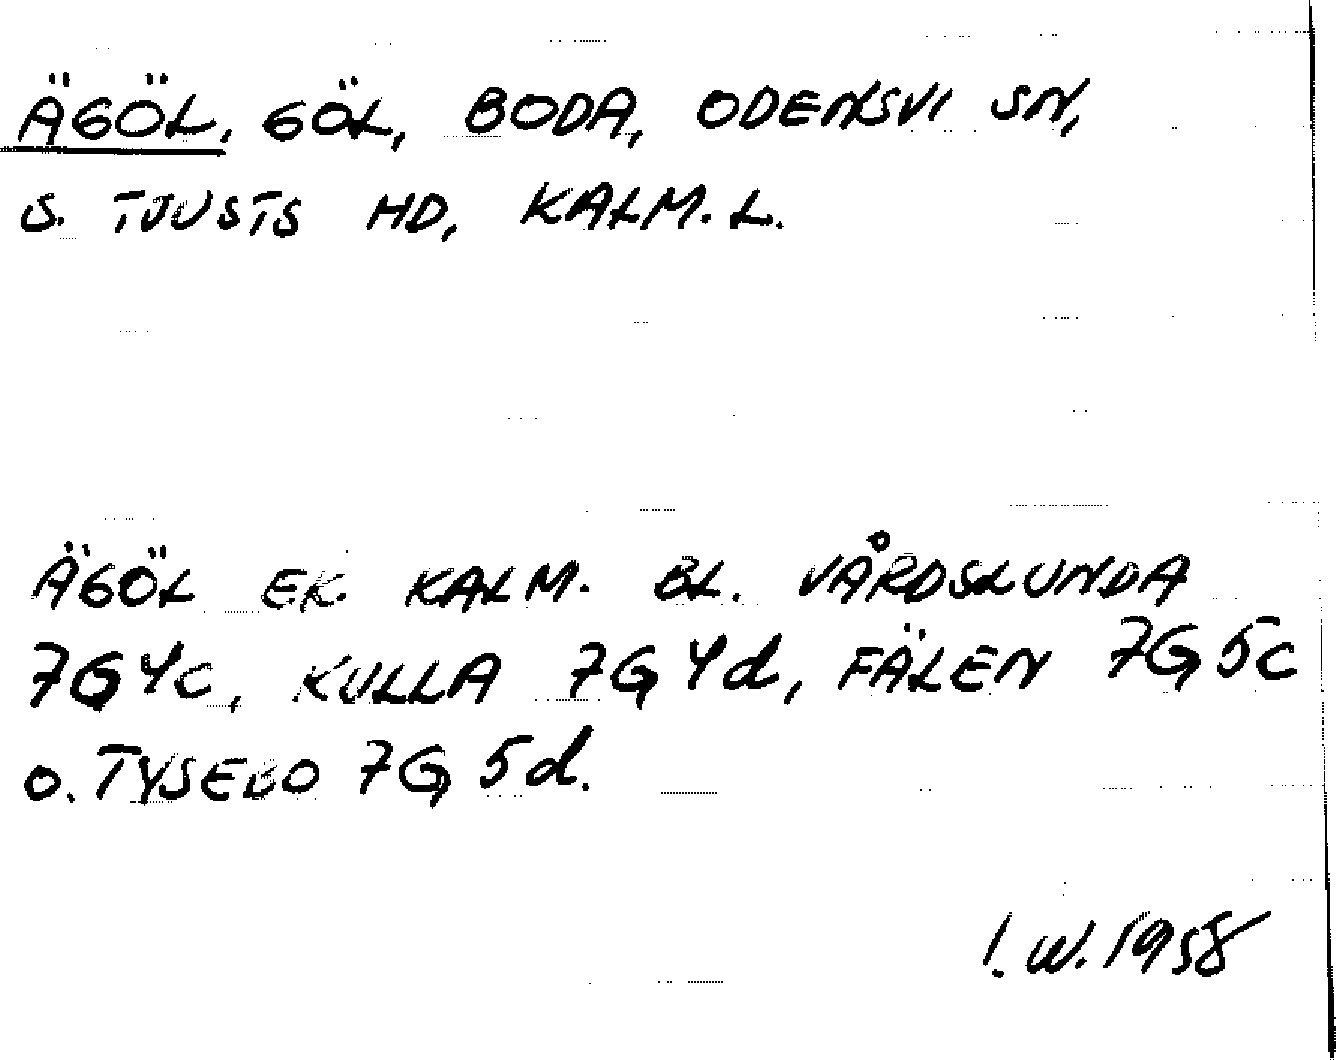 ÄGÖL, GÖL, BODA, ODENSVI SN,
S. TJUSTS HD, KALM. L.
ÄGÖL EK. KALM. BL. VÅRDSLUNDA
7G4c, KULLA 7G4d, FÄLEN 7G5c
O. TYSEBO 7G5d.
I.W. 1958